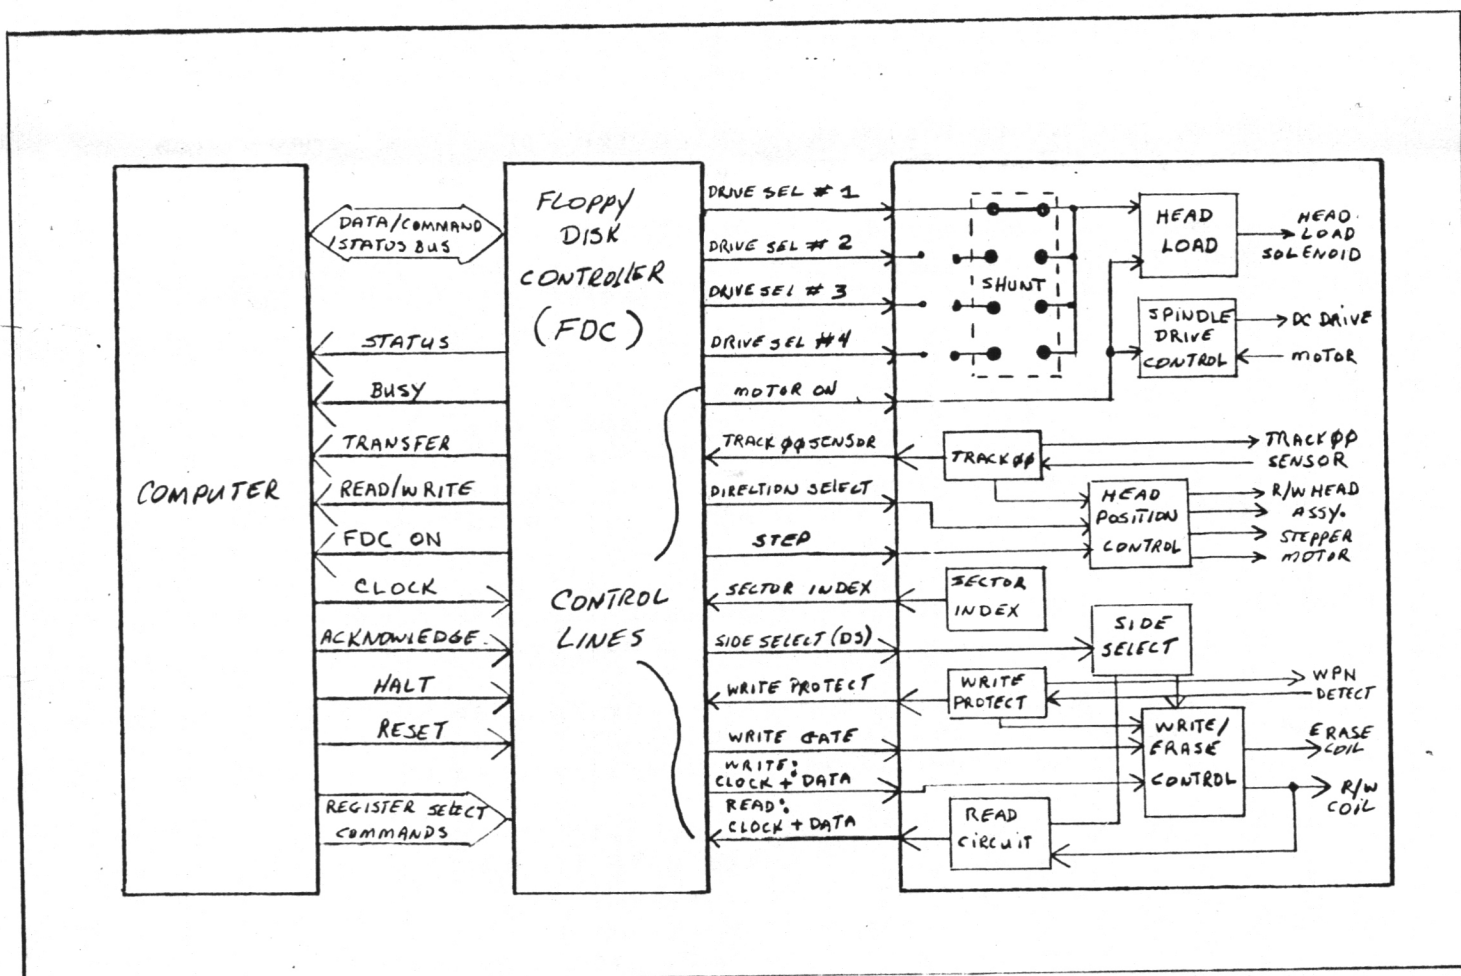 COMPUTER
DATA/COMMAND
/STATUS BUS
STATUS
BUSY
TRANSFER
READ/WRITE
FDC ON
CLOCK
ACKNOWLEDGE
HALT
RESET
REGISTER SELECT
COMMANDS
FLOPPY
DISK
CONTROLLER
(FDC)
CONTROL
LINES
DRIVE SEL # 1
DRIVE SEL # 2
DRIVE SEL # 3
DRIVE SEL #4
MOTOR ON
TRACK ØØ SENSOR
DIRECTION SELECT
STEP
SECTOR INDEX
SIDE SELECT (DS)
WRITE PROTECT
WRITE GATE
WRITE:
CLOCK + DATA
READ:
CLOCK + DATA
SHUNT
HEAD
LOAD
HEAD
LOAD
SOLENOID
SPINDLE
DRIVE
CONTROL
DC DRIVE
MOTOR
TRACK ØØ
TRACK ØØ
SENSOR
HEAD
POSITION
CONTROL
R/W HEAD
ASSY.
STEPPER
MOTOR
SECTOR
INDEX
SIDE
SELECT
WRITE
PROTECT
WPN
DETECT
WRITE/
ERASE
CONTROL
ERASE
COIL
R/W
COIL
READ
CIRCUIT